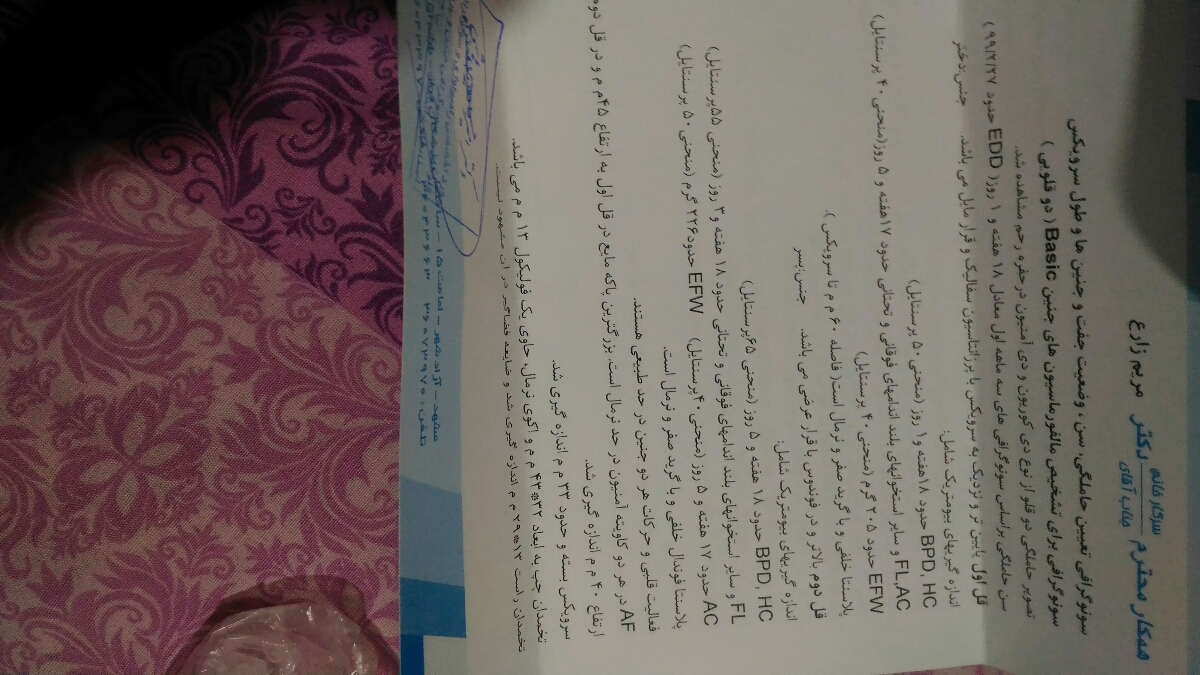 همکار محترم سرکار خانم دکتر مریم زارع
جناب آقای
سونوگرافی تعیین حاملگی، سن، وضعیت جفت و جنین ها و طول سرویکس
سونوگرافی برای تشخیص مالفورماسیون های جنین Basic ( دو قلویی )
تصویر حاملگی دو قلو از نوع دی کوریون و دی آمنیون در حفره رحم مشاهده شد.
سن حاملگی براساس سونوگرافی های سه ماهه اول معادل ۱۸ هفته و ۱ روز( EDD حدود ۹۹/۲/۲۷ )
قل اول پایین تر و نزدیک به سرویکس با پرزانتاسیون سفالیک و قرار مایل می باشد. جنس:دختر
اندازه گیریهای بیومتریک شامل:
BPD, HC حدود ۱۸هفته و۱ روز (منحنی ۵۰ پرسنتایل)
FL,AC و سایر استخوانهای بلند اندامهای فوقانی و تحتانی حدود ۱۷هفته و ۵ روز(منحنی ۴۰ پرسنتایل)
EFW حدود ۲۰۵ گرم (منحنی ۴۰ پرسنتایل)
پلاسنتا خلفی و با گرید صفر و نرمال است( فاصله ۶۰ م م تا سرویکس).
قل دوم بالاتر و در فوندوس با قرار عرضی می باشد. جنس:پسر
اندازه گیریهای بیومتریک شامل:
BPD, HC حدود ۱۸ هفته و ۵ روز (منحنی ۶۵پرسنتایل)
FL و سایر استخوانهای بلند اندامهای فوقانی و تحتانی حدود ۱۸ هفته و۳ روز (منحنی ۵۵پرسنتایل)
AC حدود ۱۷ هفته و ۵ روز (منحنی ۴۰پرسنتایل) EFW حدود۲۲۶ گرم (منحنی ۵۰ پرسنتایل)
پلاسنتا فوندال خلفی و با گرید صفر و نرمال است.
فعالیت قلبی و حرکات هر دو جنین در حد طبیعی هستند.
AF در هر دو کاویته آمنیون در حد نرمال است. بزرگترین پاکه مایع در قل اول به ارتفاع ۴۵م م و در قل دوم
ارتفاع ۴۰ م م اندازه گیری شد.
سرویکس بسته و حدود ۳۳ م م اندازه گیری شد.
تخمدان چپ به ابعاد ۳۲*۴۳ م م و اکوی نرمال، حاوی یک فولیکول ۱۳ م م می باشد.
تخمدان راست ۱۳*۲۹ م م اندازه گیری شد و ضایعه فضاگیر در آن مشهود نیست.
مشهد - آزادشهر - امامت ۱۵ -
تلفن :